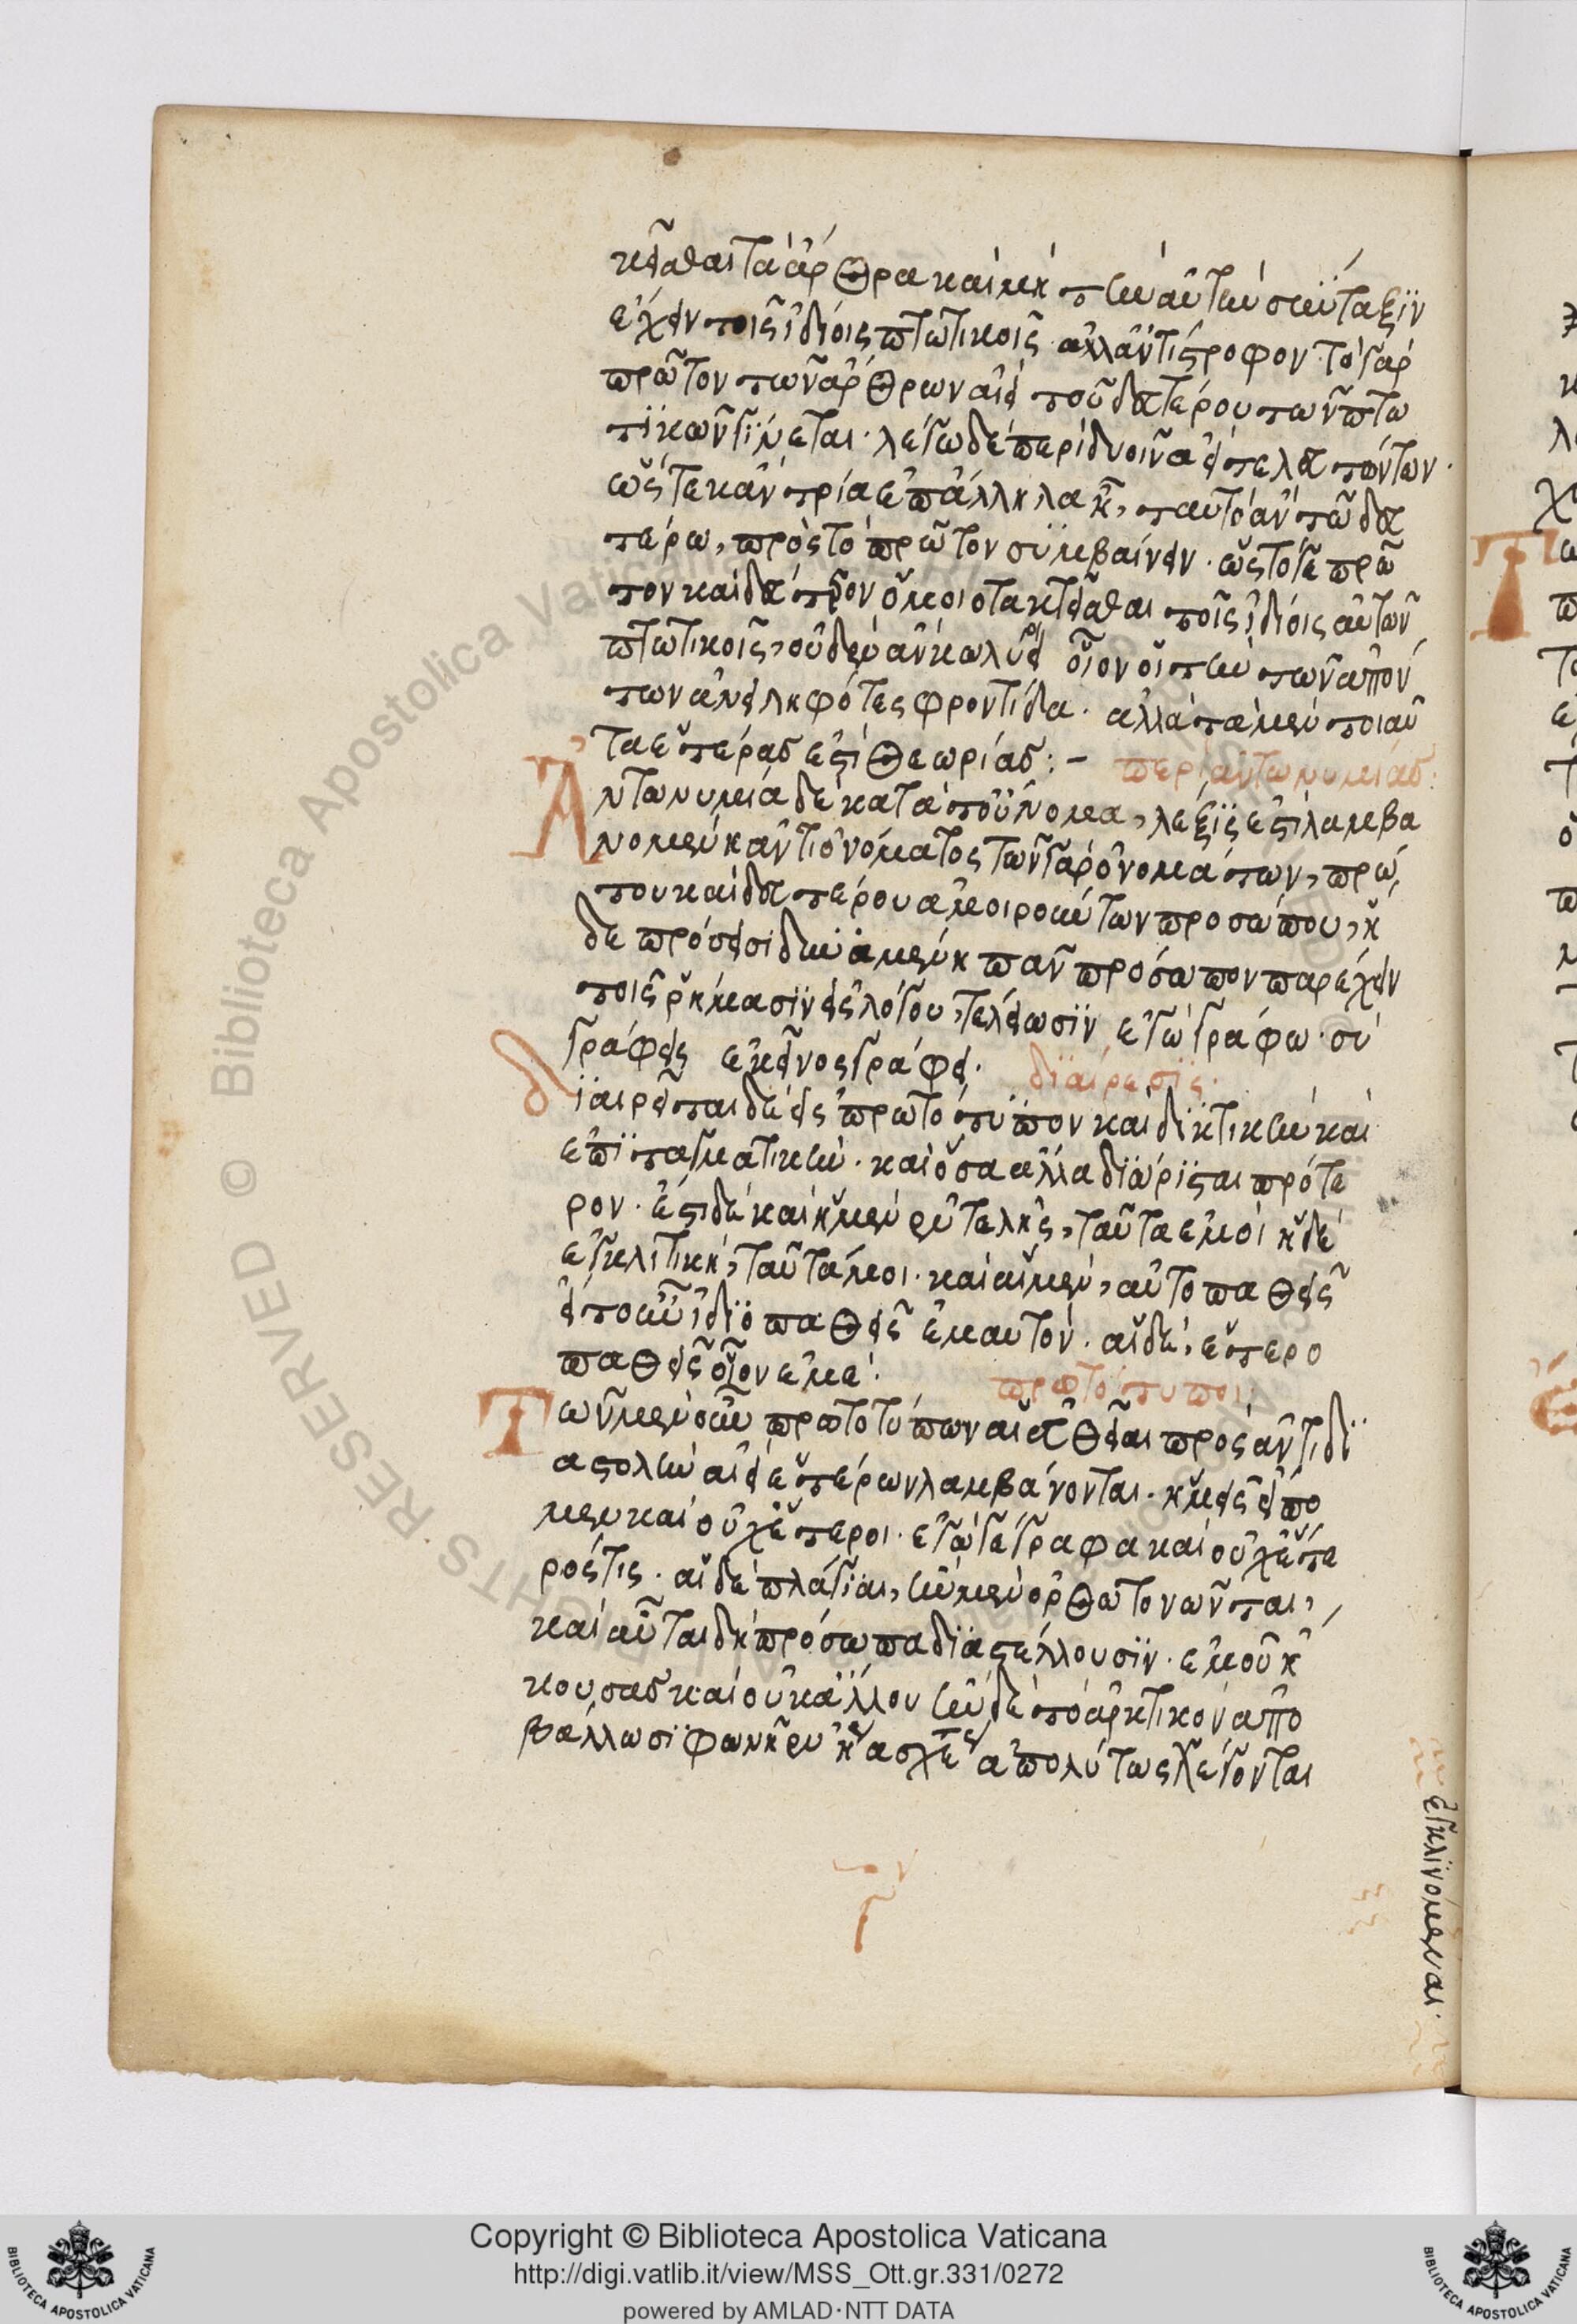 κεῖσθαι τὰ ἄρθρα καὶ μὴ τὴν αὐτὴν σύνταξιν
ἔχειν τοῖς ἰδίοις πτωτικοῖς ἀλλ' ἀντίστροφον. τὸ γὰρ
πρῶτον τῶν ἄρθρων ἀεὶ τοῦ δατέρου τῶν πτω
τικῶν γίνεται. λέγω δὲ περὶ δυοῖν ἀεὶ τελατόντων.
ὥστε κἂν τρία ἐπάλληλα ᾖ, ταυτὸ ἂν τῷ δα
τέρω, πρὸς τὸ πρῶτον συμβαίνειν. ὥς τό γε πρῶ
τον καὶ δάτερον ὁμοιοτακτεῖσθαι τοῖς ἰδίοις αὐτῶν
πτωτικοῖς, οὐδὲν ἂν κωλύοι οἷον οἱ τὴν τῶν ἁπάν
των ἀνειληφότες φροντίδα. ἀλλὰ τὰ μὲν τοιαῦ
τα ἑτέρας ἐστὶ θεωρίας:- περὶ ἀντωνυμίας:
Ἀντωνυμία δὲ κατὰ τοὔνομα, λέξις ἐπιλαμβα
νομένη ἀντὶ ὀνόματος τῶν γὰρ ὀνομάτων, πρώ
του καὶ δατέρου ἀμοιρούντων προσώπου, ἡ
δε πρόσεισι δυναμένη πᾶν πρόσωπον παρέχειν
τοῖς ῥήμασιν εἰς λόγου τελείωσιν ἐγὼ γράφω. σὺ
γράφεις ἐκεῖνος γράφει. διαίρεσις.
διαιρεῖται δὲ εἰς πρωτότυπον καὶ δικτικὴν καὶ
ἐπιταγματικὴν. καὶ ὅσα ἄλλα διώρισται πρότε
ρον. ἔστι δὲ καὶ ἡ μὲν ἐντελὴς, ταῦτα ἐμοὶ ἡ δὲ
ἐγκλιτικὴ, ταῦτά μοι. καὶ αἱ μὲν, αὐτοπαθεῖς
εἴτουν ἰδιοπαθεῖς ἐμαυτόν. αἱ δὲ, ἑτερο
παθεῖς οἷον ἐμέ. πρωτότυποι
Τῶν μὲν οὖν πρωτοτύπων αἱ εὐθεῖαι πρὸς ἀντιδι
αστολὴν ἀεὶ ἑτέρων λαμβάνονται. ἡμεῖς εἴπο
μεν καὶ οὐχ ἕτεροι. ἐγὼ γέγραφα καὶ οὐχ ἕτε
ρός τις. αἱ δὲ πλάγιαι, ἢν μὲν ὀρθοτονῶνται,
καὶ αὗται δὴ πρόσωπα διαστέλλουσιν. ἐμοῦ ἤ
κουσας καὶ οὐκ ἄλλου ἢν δὲ τὸ ἀρκτικὸν ἀπο
βάλλωσι φωνῆεν ἀπολύτως λέγονται
ἐγκλινόμεναι.
Copyright © Biblioteca Apostolica Vaticana
http://digi.vatlib.it/view/MSS_Ott.gr.331/0272
powered by AMLAD·NTT DATA